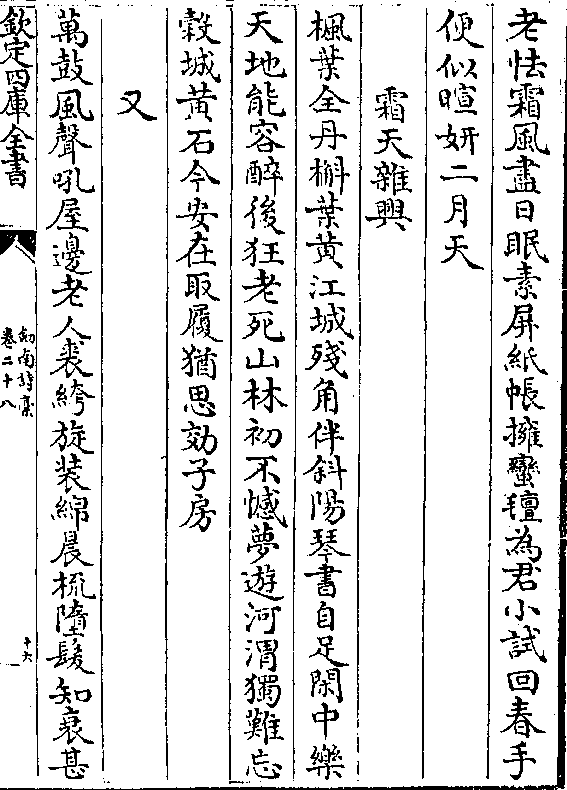 老怯霜風盡日眠素屏紙帳擁蠻氊為君小試回春手
便似暄妍二月天
霜天雜興
楓葉全丹槲葉黄江城殘角伴斜陽琴書自足閑中樂
天地能容醉後狂老死山林初不憾夢遊河渭獨難忘
穀城黄石今安在取履猶思効子房
又
萬鼓風聲吼屋邊老人裘絝旋装綿晨梳墮髮知衰甚
欽定四庫全書
劒南詩藁
卷二十八
十六